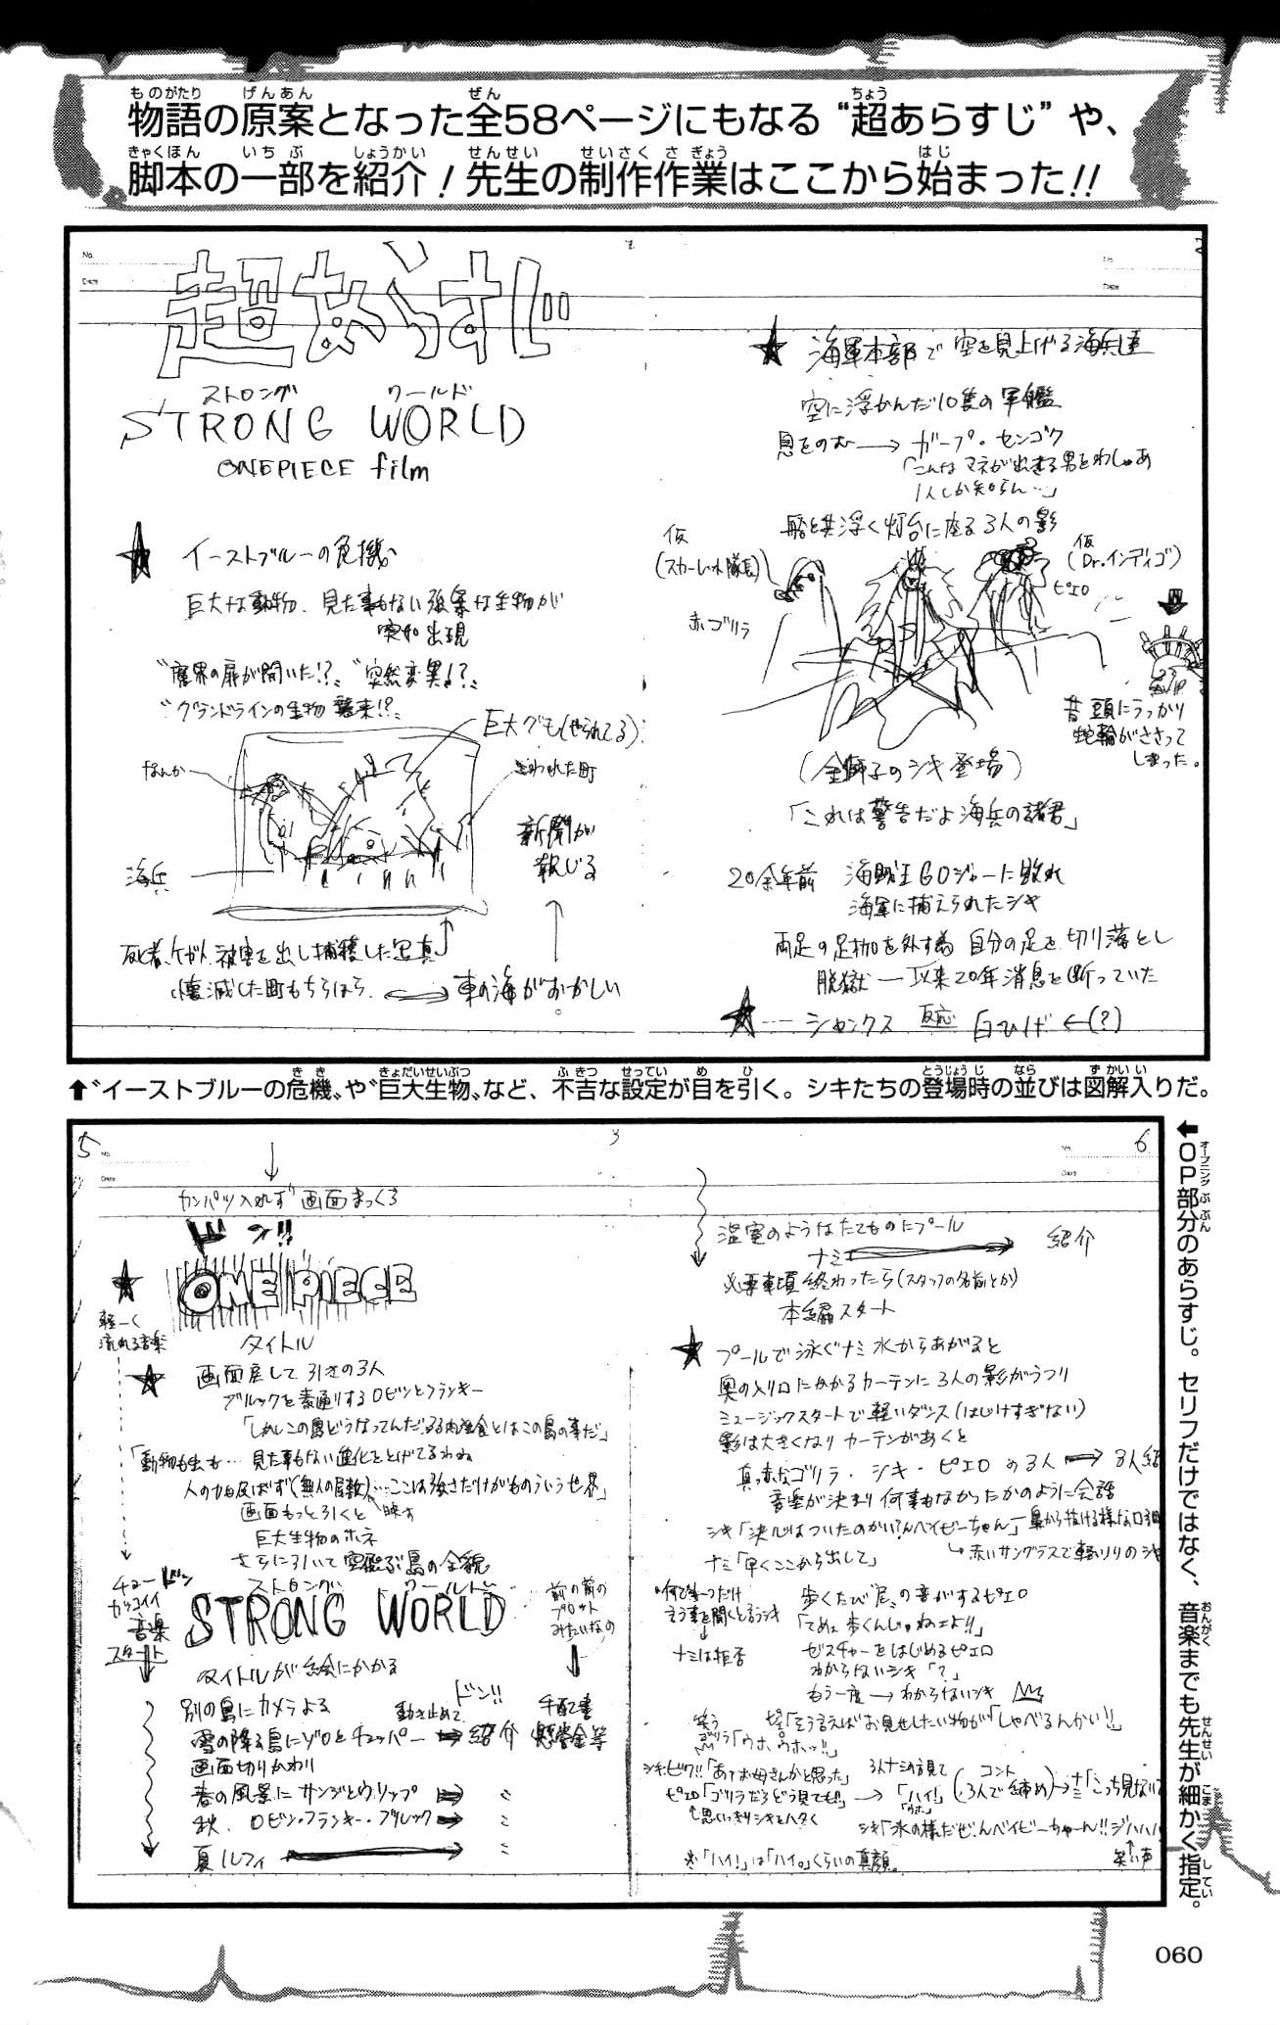 物語の原案となった全58ページにもなる“超あらすじ”や、
脚本の一部を紹介！先生の制作作業はここから始まった!!
超あらすじ
ストロング ワールド
STRONG WORLD
ONEPIECE film
★ イーストブルーの危機
巨大な動物、見た事もない強暴な生物が
突如出現
“魔界の扉が開いた!?” “突然変異!?”
“グランドラインの生物 襲来!?”
巨大グモ(やられてる)
なんか
新聞が
報じる
海兵
死者、ケガ人、被害を出し捕獲した写真
壊滅した町もちらほら
東の海がおかしい
★ 海軍本部で空を見上げる海兵達
空に浮かんだ10隻の軍艦
息をのむ→ガープ・センゴク
「こんなマネが出来る男をわしゃあ
1人しか知らん…」
船と共浮く灯台に座る3人の影
仮
(スカーレット隊長)
赤ゴリラ
仮
(Dr.インディゴ)
ピエロ
昔頭にうっかり
蛇輪がささって
しまった。
(金獅子のシキ登場)
「これは警告だよ海兵の諸君」
20余年前 海賊王GDジャーに敗れ
海軍に捕えられたシキ
両足の足枷を外す為 自分の足を切り落とし
脱獄―以来20年消息を断っていた
★…シャンクス 反応 白ひげ ←(?)
⬆“イーストブルーの危機”や“巨大生物”など、不吉な設定が目を引く。シキたちの登場時の並びは図解入りだ。
5
3
カンパツ入れず 画面まっくろ
ドン!!
★ ONE PIECE
軽ーく
流れる音楽
タイトル
★ 画面戻して 引きの3人
ブルックを素通りするロビンとフランキー
「しかしこの島どうなってんだ 弱肉強食とはこの島の事だ」
「動物も虫も… 見た事もない進化をとげてるわね
人の力も及ばず(無人の屋敷)…ここは強さだけがものいう世界」
映す
画面もっと引くと
巨大生物のホネ
さらに引いて 空飛ぶ島の全貌
チャー ドン
カッコイイ
音楽
スタート
ストロング ワールド
STRONG WORLD
前の前の
プロット
みたいなの
タイトルが絵にかかる
別の島にカメラよる
動き止めて ドン!!
雪の降る島にゾロとチョッパー → 紹介
手配書
懸賞金等
画面切りかわり
春の風景に サンジとウソップ →〃
秋. ロビン・フランキー・ブルック →〃
夏 ルフィ →〃
6
温室のようなたてものにプール
ナミ → 紹介
必要事項 終わったら(スタッフの名前とか)
本編スタート
★ プールで泳ぐナミ 水からあがると
奥の入り口にかかるカーテンに 3人の影がうつり
ミュージックスタートで軽いダンス(はじけすぎない)
影は大きくなり カーテンがあくと
真っ赤なゴリラ・シキ・ピエロ の3人 → 3人紹
音楽が決まり 何事もなかったかのように会話
シキ「決心はついたのかい?んベイビーちゃん」―鼻から抜ける様な口調
赤いサングラスで
ナミ「早くここから出して」
何でも一つだけ
言う事を聞くと言うシキ
ナミは拒否
歩くたび“屁”の音がするピエロ
「てめェ歩くんじゃねェよ!!」
ゼスチャーをはじめるピエロ
わからないシキ「?」
もう一度→わからないシキ
ピエ「そう言えばお見せしたい物が」「しゃべるんかい!!」
笑う
ゴリラ「ウホ、ウホッ!!」
シキ:ビク!!「あァお母さんかと思った」
ピエロ「ゴリラだろどう見ても!!」
思いっきりシキをハタく
3人ナミの方見て
「ハイ!」
コント
(3人で締め)→ナミ「こっち見ない
シキ「氷の様だぜ、んベイビーちゃーん!!ジハハハ
笑い声
※「ハイ!」は「ハイ。」くらいの真顔。
⬅OP部分のあらすじ。セリフだけではなく、音楽までも先生が細かく指定。
060